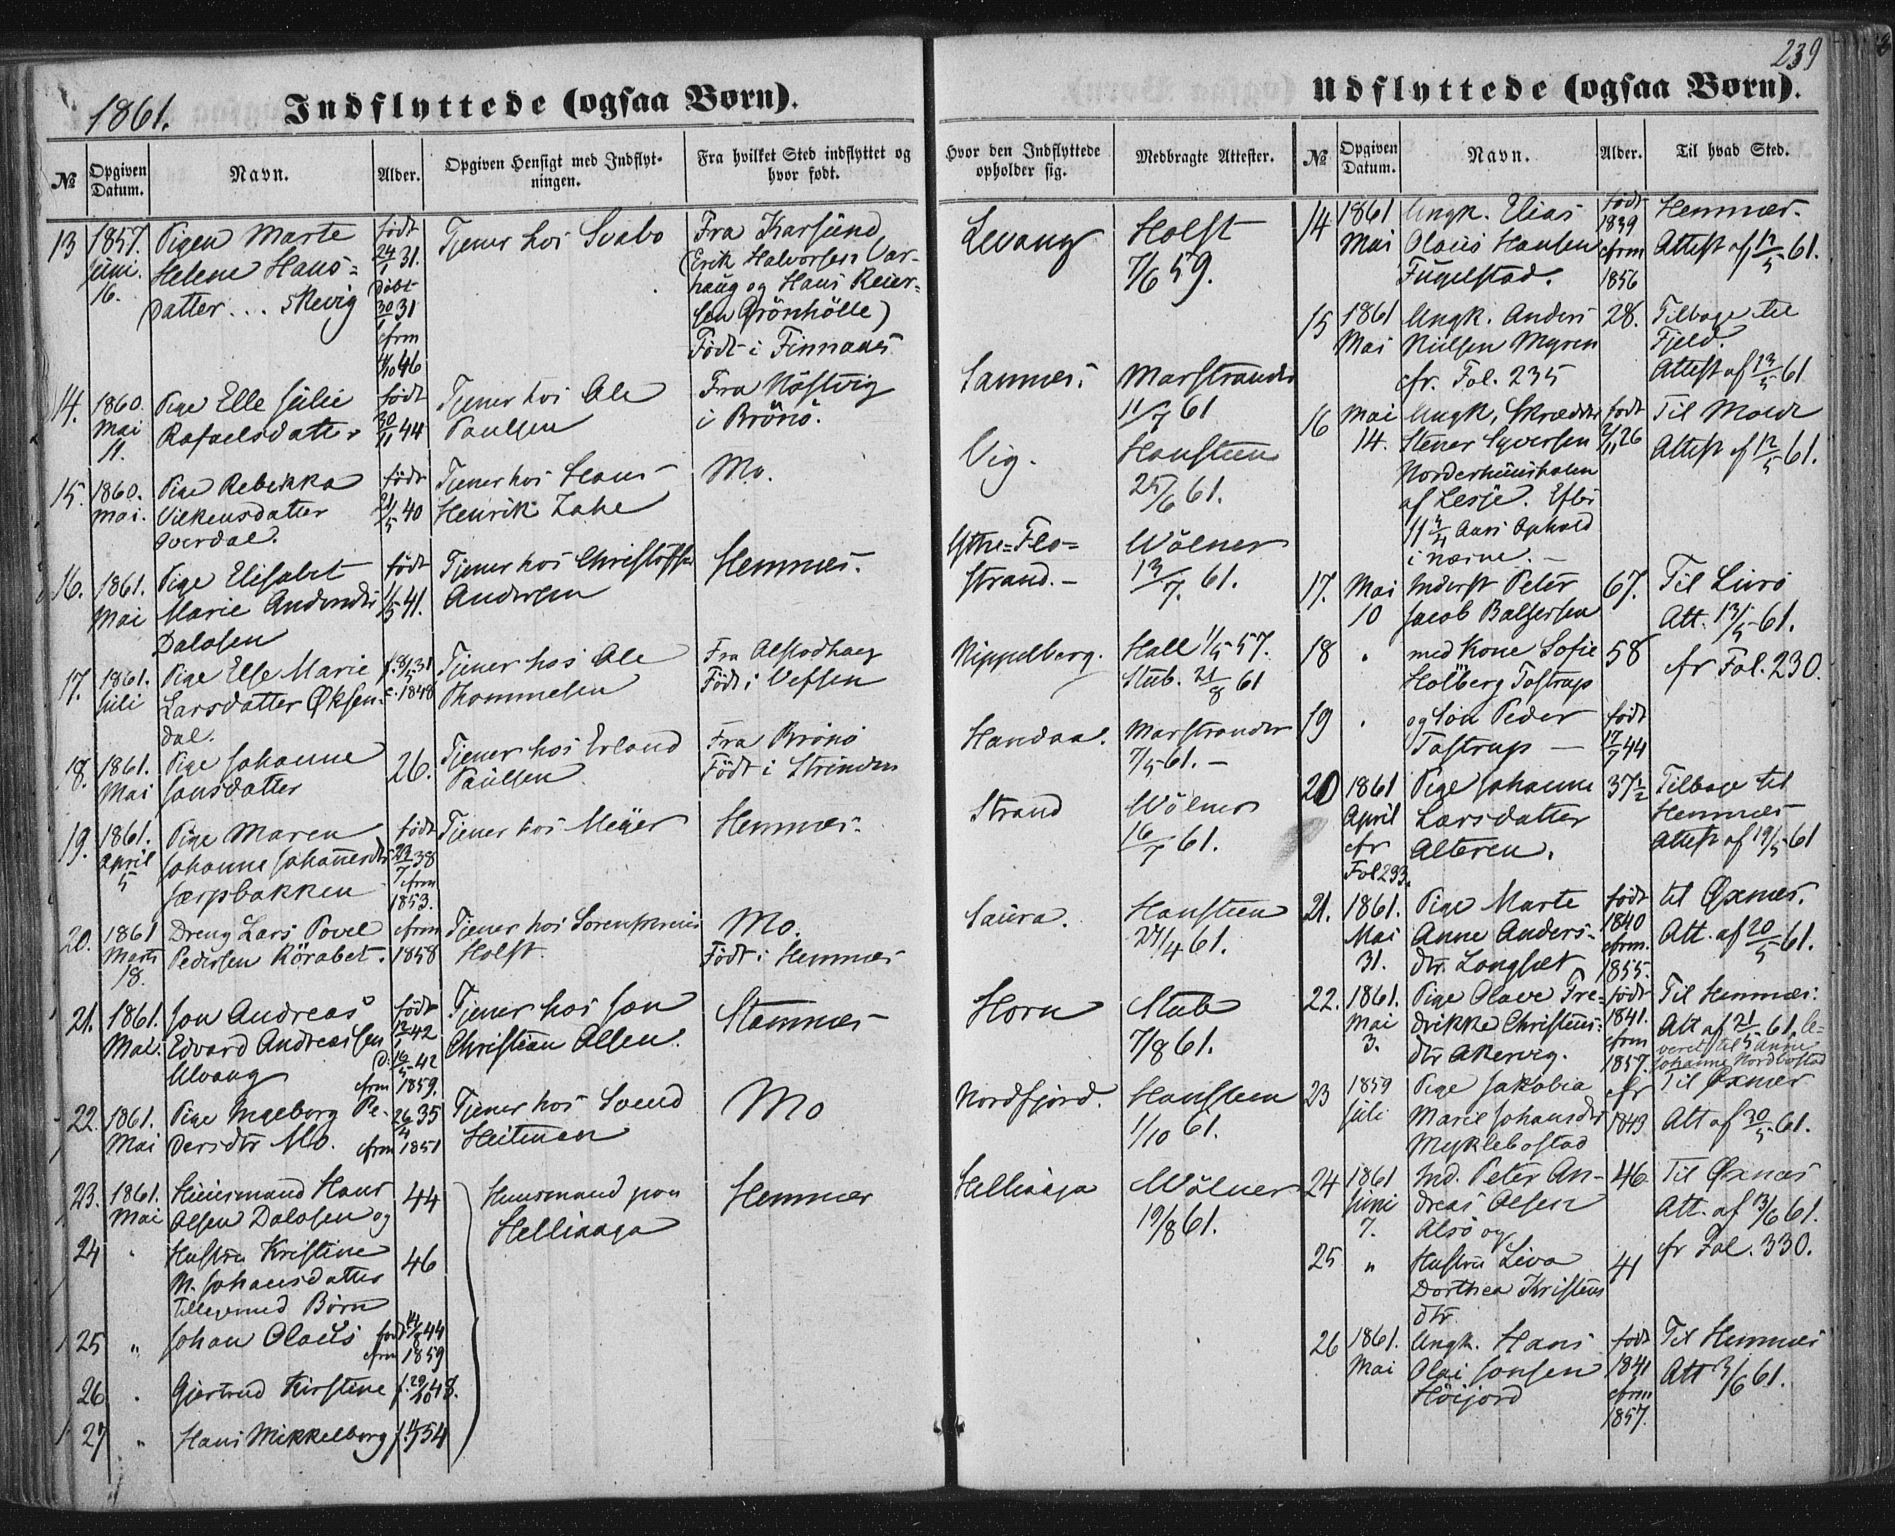 239
1861.
Indflyttede (ogsaa Børn).
№
Opgiven Datum.
Navn.
Alder.
Opgiven Hensigt med Indflyt-
ningen.
Fra hvilket Sted indflyttet og
hvor født.
Hvor den Indflyttede
opholder sig.
Medbragte Attester.
13
1857.
Juni.
16.
Pigen Marte
Helene Hans-
datter... Skevig
født
24/1 31.
døbt
30/ 31
cfrm
4/10 46
Tjener hos Svabo
Fra Karsund
(Erik Halvorsen Var-
haug og Hans Reier-
sen Grönhölle)
Født i Finnanes
Levang
Holst
7/6 59.
14.
1860.
Mai
11.
Pige Elle Julie
Rafaelsdatter
født
30/11 44
Tjener hos Ole
Paulsen
Fra Nöstvig
i Brönö.
Sannes.
Marstrander
11/7 61
15.
1860.
Mai.
Pige Rebekka
Vilkensdatter
Overdal.
født
21/5 40
Tjener hos Hans
Henrik Zahe
Mo.
Vig.
Hansteen
25/6 61.
16.
1861.
Mai
Pige Elisabet
Marie Andersdtr
Dalosen
født
1/5 41.
Tjener hos Christoffer
Andersen
Hemnes.
Ytre-Flo-
strand.-
Wölner
13/7. 61.
17.
1861.
Juli
Pige Else Marie
Larsdatter Øksen-
dal.
f. 8/5 31
c. 1848
Tjener hos Ole
Thommesen
Fra Alstadhaug
Født i Vefsen
Nippelberg.
Hall 1/5 57.
Stub. 21/8 61
18.
1861.
Mai
Pige Johanne
Jansdatter
26.
Tjener hos Erland
Paulsen
Fra Brönö
Födt i Strinden
Handaa.
Marstrander
7/5 61.-
19.
1861.
April
5
Pige Maren
Johanne Johannesdtr
Jærpbakken
født
29/7 38
cfrm
1853.
Tjener hos Meyer
Hemnes.
Strand
Wölner
16/7 61.
20.
1861
Marts
18.
Dreng Lars Povel
Pedersen Rörabet.
cfrm
1858
Tjener hos Sorenskriver
Holst.
Mo.
Født i Hemnes
Saura.
Hansteen
27/4 61.
21.
1861.
Mai.
Jon Andreas
Edvard Andreassen
Ulvang
født
12/1 42
d. 16/5 42
cfrm 1859.
Tjener hos Jon
Christian Olsen.
Stamnes
Horn
Stub
7/8 61.
22.
1861.
Mai
Pige Ingeborg Pe-
dersdtr Mo.
26/4 35
cfrm 1851
Tjener hos Svend
Heitman
Mo
Nordfjord.
Hansteen
1/10 61.
23.
1861.
Mai
Huusmand Hans
Olsen Dalosen og
44
Huusmand paa
Hellaaga
Hemnes
Hellaaga
Wölner
19/8 61.
24
Hustru Kristine
M. Johansdatter
tilligemed Börn
46
25
"
Johan Olaüs
født 14/8 44
cfrm 1859
26
Gjertrud Kirstine
f. 29/10 48.
27
"
Hans Mikkelborg
f. 11/7 54
Udflyttede (ogsaa Børn).
№
Opgiven Datum.
Navn.
Alder.
Til hvad Sted.
14
1861
Mai
Ungk. Elias
Olaus Hansen
Fugelstad.
født
1839
cfrm
1856
Hemnes.
Attest af 12/5 61.
15
1861
Mai
Ungk. Anders
Nielsen Myren
cfr. Fol. 235
28.
Tilbage til
Fjeld.
Attest af 13/5 61
16
Mai
14.
Ungk, Skrædder
Stener Syversen
Norderhuushalen
af Lesje. Efter
11 3/4 Aars Ophold
i nærine.-
født
2/11 26
Til Molde
Attest af 12/5 61.
17.
Mai
10
Inderst Peter
Jacob Balzersen
67.
Til Lurö
Att. 13/5 61.
18
med Kone Sofie
Hölberg Tostrup
58
cfr Fol. 230.
19
og Søn Peder
Tostrup -
født
17/7 44
20
1861
April
cfr
Fol 233.
Pige Johanne
Larsdatter
Alteren.
37½
Tilbage til
Hemnes
Attest af 19/5 61
21.
1861.
Mai
31.
Pige Marte
Anne Anders-
dtr. Langset
født
1840
cfrm.
1855.
til Øxnes.
Att. af 20/5 61.
22.
1861.
Mai
3.
Pige Olave Fre-
drikke Christens-
dtr Akervig.
født
1841.
cfrm
1857.
Til Hemnes.
Att af 21/5 61. le-
veret til Anne
Johanne Nordbostad
23
1859
Juli
Pige Jakobia
Marie Johansdtr
Myklebostad
cfr
1843
Til Øxnes
Att af 30/5 61.
24
1861
Juni
7.
Ind. Peter An-
dreas Olsen
Alsö og
46.
Til Øxnes
Att. af 13/6 61.
cfr Fol. 330.
25
"
Hustru Liva
Dorthea Kristens
dtr.
41
26
1861.
Mai
Ungk. Hans
Olai Jonsen
Höijord
født
1841
cfrm
1857.
Til Hemnes
Att 3/6 61.